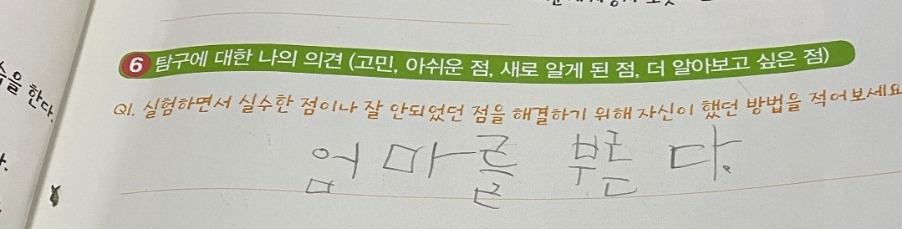 6 탐구에 대한 나의 의견 (고민, 아쉬운 점, 새로 알게 된 점, 더 알아보고 싶은 점)
Q1. 실험하면서 실수한 점이나 잘 안되었던 점을 해결하기 위해 자신이 했던 방법을 적어보세요
엄마를 부른다.
을 한다.